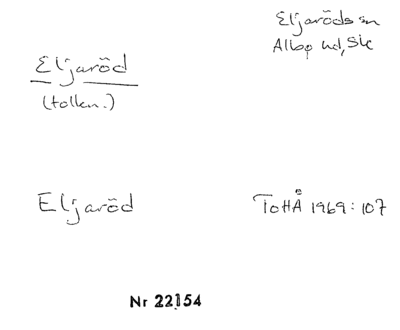 Eljaröds sn
Albo hd, Sk
Eljaröd
(tolkn.)
Eljaröd
ToHÅ 1969:107
Nr 22154